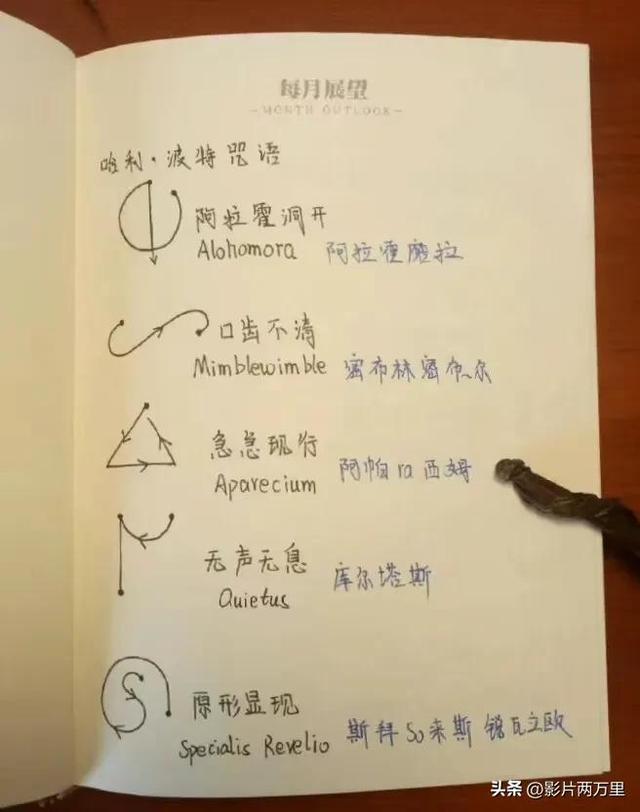 每月展望
MONTH OUTLOOK
哈利·波特咒语
阿拉霍洞开
Alohomora 阿拉霍磨拉
口齿不清
Mimblewimble 密布林密布尔
急急现行
Aparecium 阿帕ra西姆
无声无息
Quietus 库尔塔斯
原形显现
Specialis Revelio 斯拜So来斯 锐瓦立欧
头条 @影片两万里